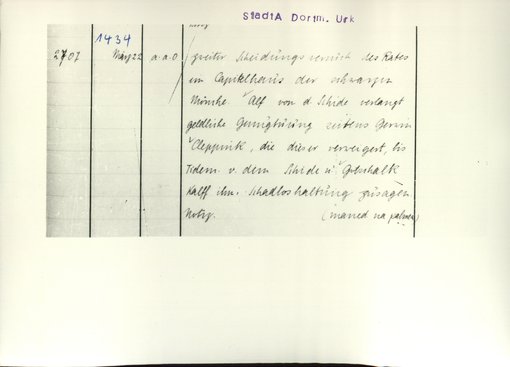 StadtA Dortm. Urk
1434
2707 März 22 a.a.O. zweiter Scheidungsversuch des Rates
im Capitelhaus der schwarzen
Mönche. Alf von d Schide verlangt
geldliche Genugthuung seitens Gerwin
Cleppink, die dieser verweigert, bis
Tidem. v. dem Schide u.
Halff ihm Schadloshaltung zusagen
Notiz.